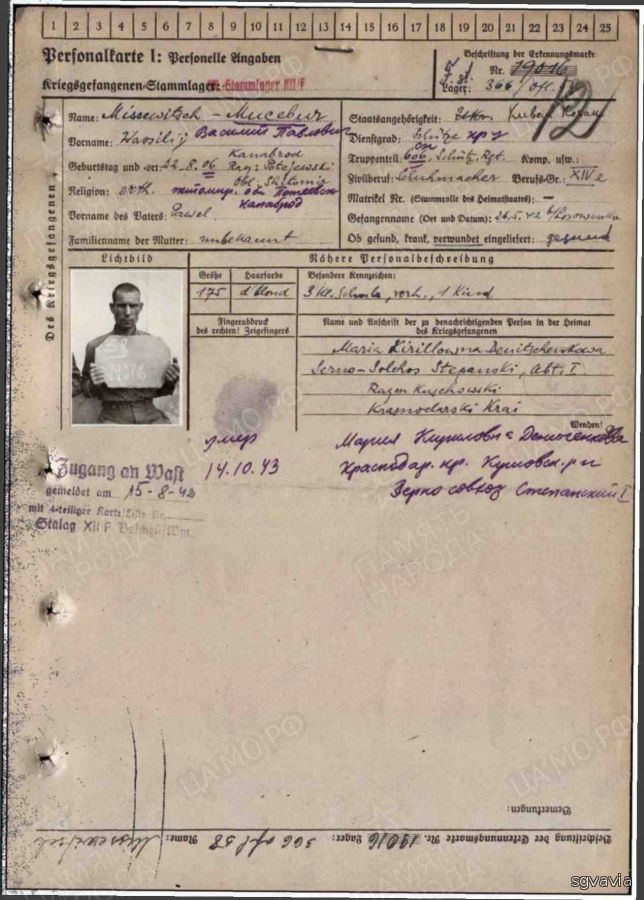 1 2 3 4 5 6 7 8 9 10 11 12 13 14 15 16 17 18 19 20 21 22 23 24 25
Personalkarte I: Personelle Angaben
Kriegsgefangenen-Stammlager: Stammlager XII/F
Beschriftung der Erkennungsmarke
Nr. 19016
Lager: 366
Des Kriegsgefangenen
Name: Missewitsch - Мисевич
Vorname: Wassilij Василий Павлович
Geburtstag und -ort: 22.8.06 Kanabrod
Obl. Shitomir
Religion: orth. житомир. обл
канаброд
Vorname des Vaters: Pawel
Familienname der Mutter: unbekannt
Staatsangehörigkeit:
Dienstgrad: Schütze кр-ц
Truppenteil: 606. Schütz. Rgt. Komp. usw.:
Zivilberuf: Schuhmacher Berufs-Gr.: XIV e
Matrikel Nr. (Stammrolle des Heimatstaates): —
Gefangennahme (Ort und Datum): 26.5.42
Ob gesund, krank, verwundet eingeliefert: gesund
Lichtbild
Nähere Personalbeschreibung
Größe Haarfarbe Besondere Kennzeichen:
175 d'blond 3 Kl. Schule, verh., 1 Kind
Fingerabdruck
des rechten! Zeigefingers
Name und Anschrift der zu benachrichtigenden Person in der Heimat
des Kriegsgefangenen
Maria Kirillowna Denitschenkowa
Serno-Solchos Stepanski, Abt. I
Rayon Kuschowski
Krasnodarski Krai
Wenden!
умер
14.10.43
Мария Кириловна
Краснодар. кр. Кущовск. р-н
Зерно совхоз Степанский I
Zugang an Wast
gemeldet am 15-8-42
mit 4-teiliger Karte/Liste Nr.
Stalag XII F
Bemerkungen:
Beschriftung der Erkennungsmarke Nr. 19016 Lager: 366 Name: Missewitsch
ЦАМО.РФ
ПАМЯТЬ НАРОДА
sgvavia